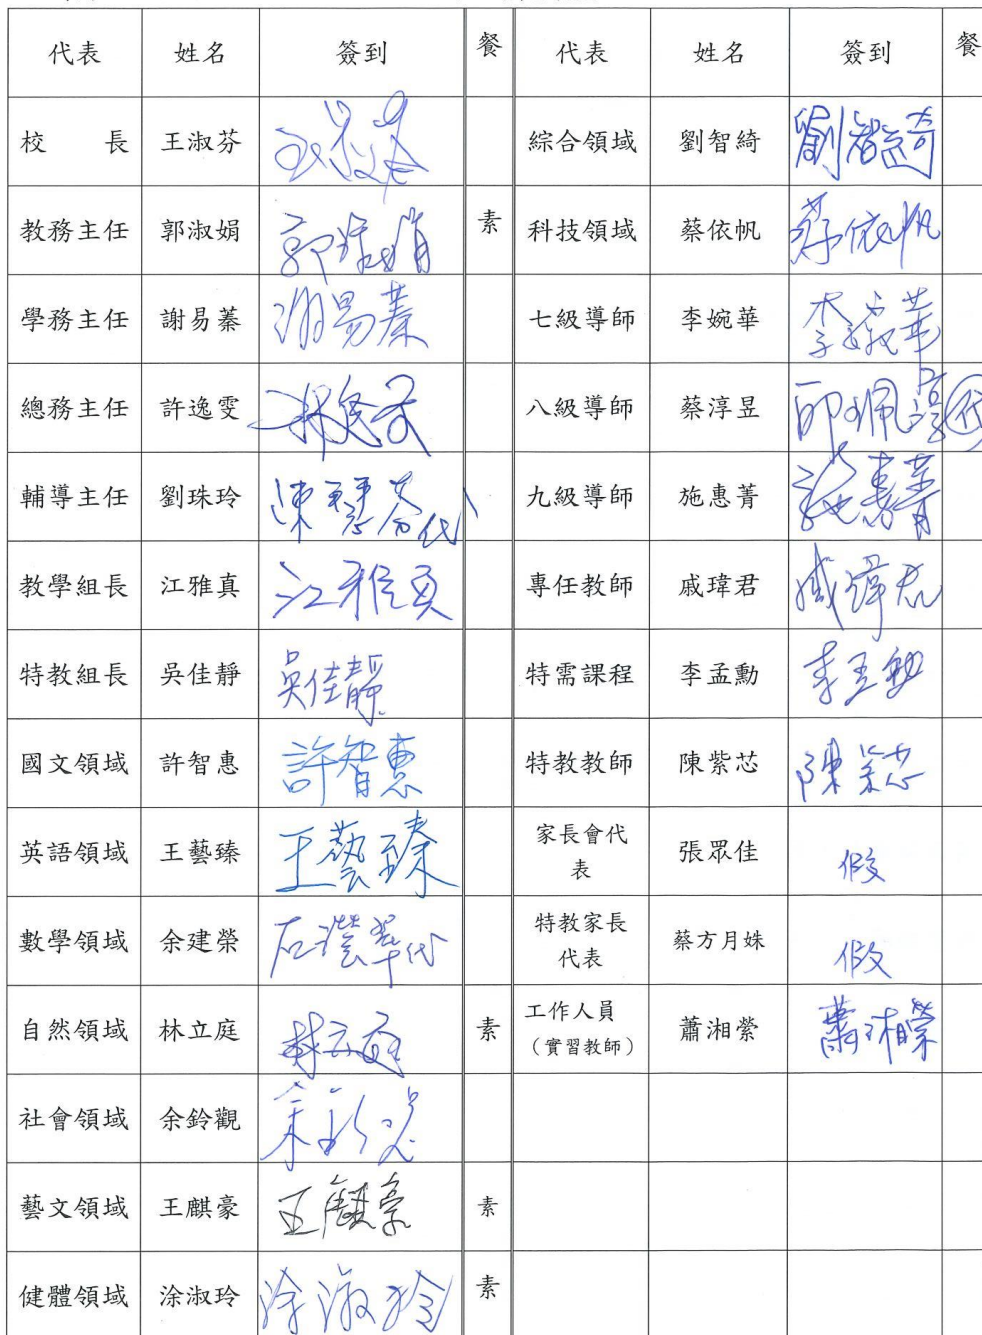 代表 姓名 簽到 餐 代表 姓名 簽到 餐
校 長 王淑芬 王淑芬 綜合領域 劉智綺 劉智綺
教務主任 郭淑娟 郭淑娟 素 科技領域 蔡依帆 蔡依帆
學務主任 謝易蓁 謝易蓁 七級導師 李婉華 李婉華
總務主任 許逸雯 八級導師 蔡淳昱 邱珮淳代
輔導主任 劉珠玲 陳慧芬代 九級導師 施惠菁 施惠菁
教學組長 江雅真 江雅真 專任教師 戚瑋君 戚瑋君
特教組長 吳佳靜 吳佳靜 特需課程 李孟勳 李孟勳
國文領域 許智惠 許智惠 特教教師 陳紫芯 陳紫芯
英語領域 王藝臻 王藝臻 家長會代
表 張眾佳 假
數學領域 余建榮 石瀅翠代 特教家長
代表 蔡方月姝 假
自然領域 林立庭 林立庭 素 工作人員
(實習教師) 蕭湘縈 蕭湘縈
社會領域 余鈴觀 余鈴觀
藝文領域 王麒豪 王麒豪 素
健體領域 涂淑玲 涂淑玲 素